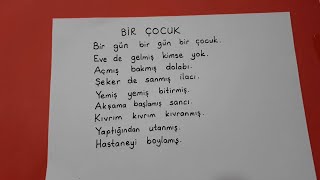 BİR ÇOCUK
Bir gün bir gün bir çocuk.
Eve de gelmiş kimse yok.
Açmış bakmış dolabı.
Şeker de sanmış ilacı.
Yemiş yemiş bitirmiş.
Akşama başlamış sancı.
Kıvrım kıvrım kıvranmış.
Yaptığından utanmış.
Hastaneyi boylamış.